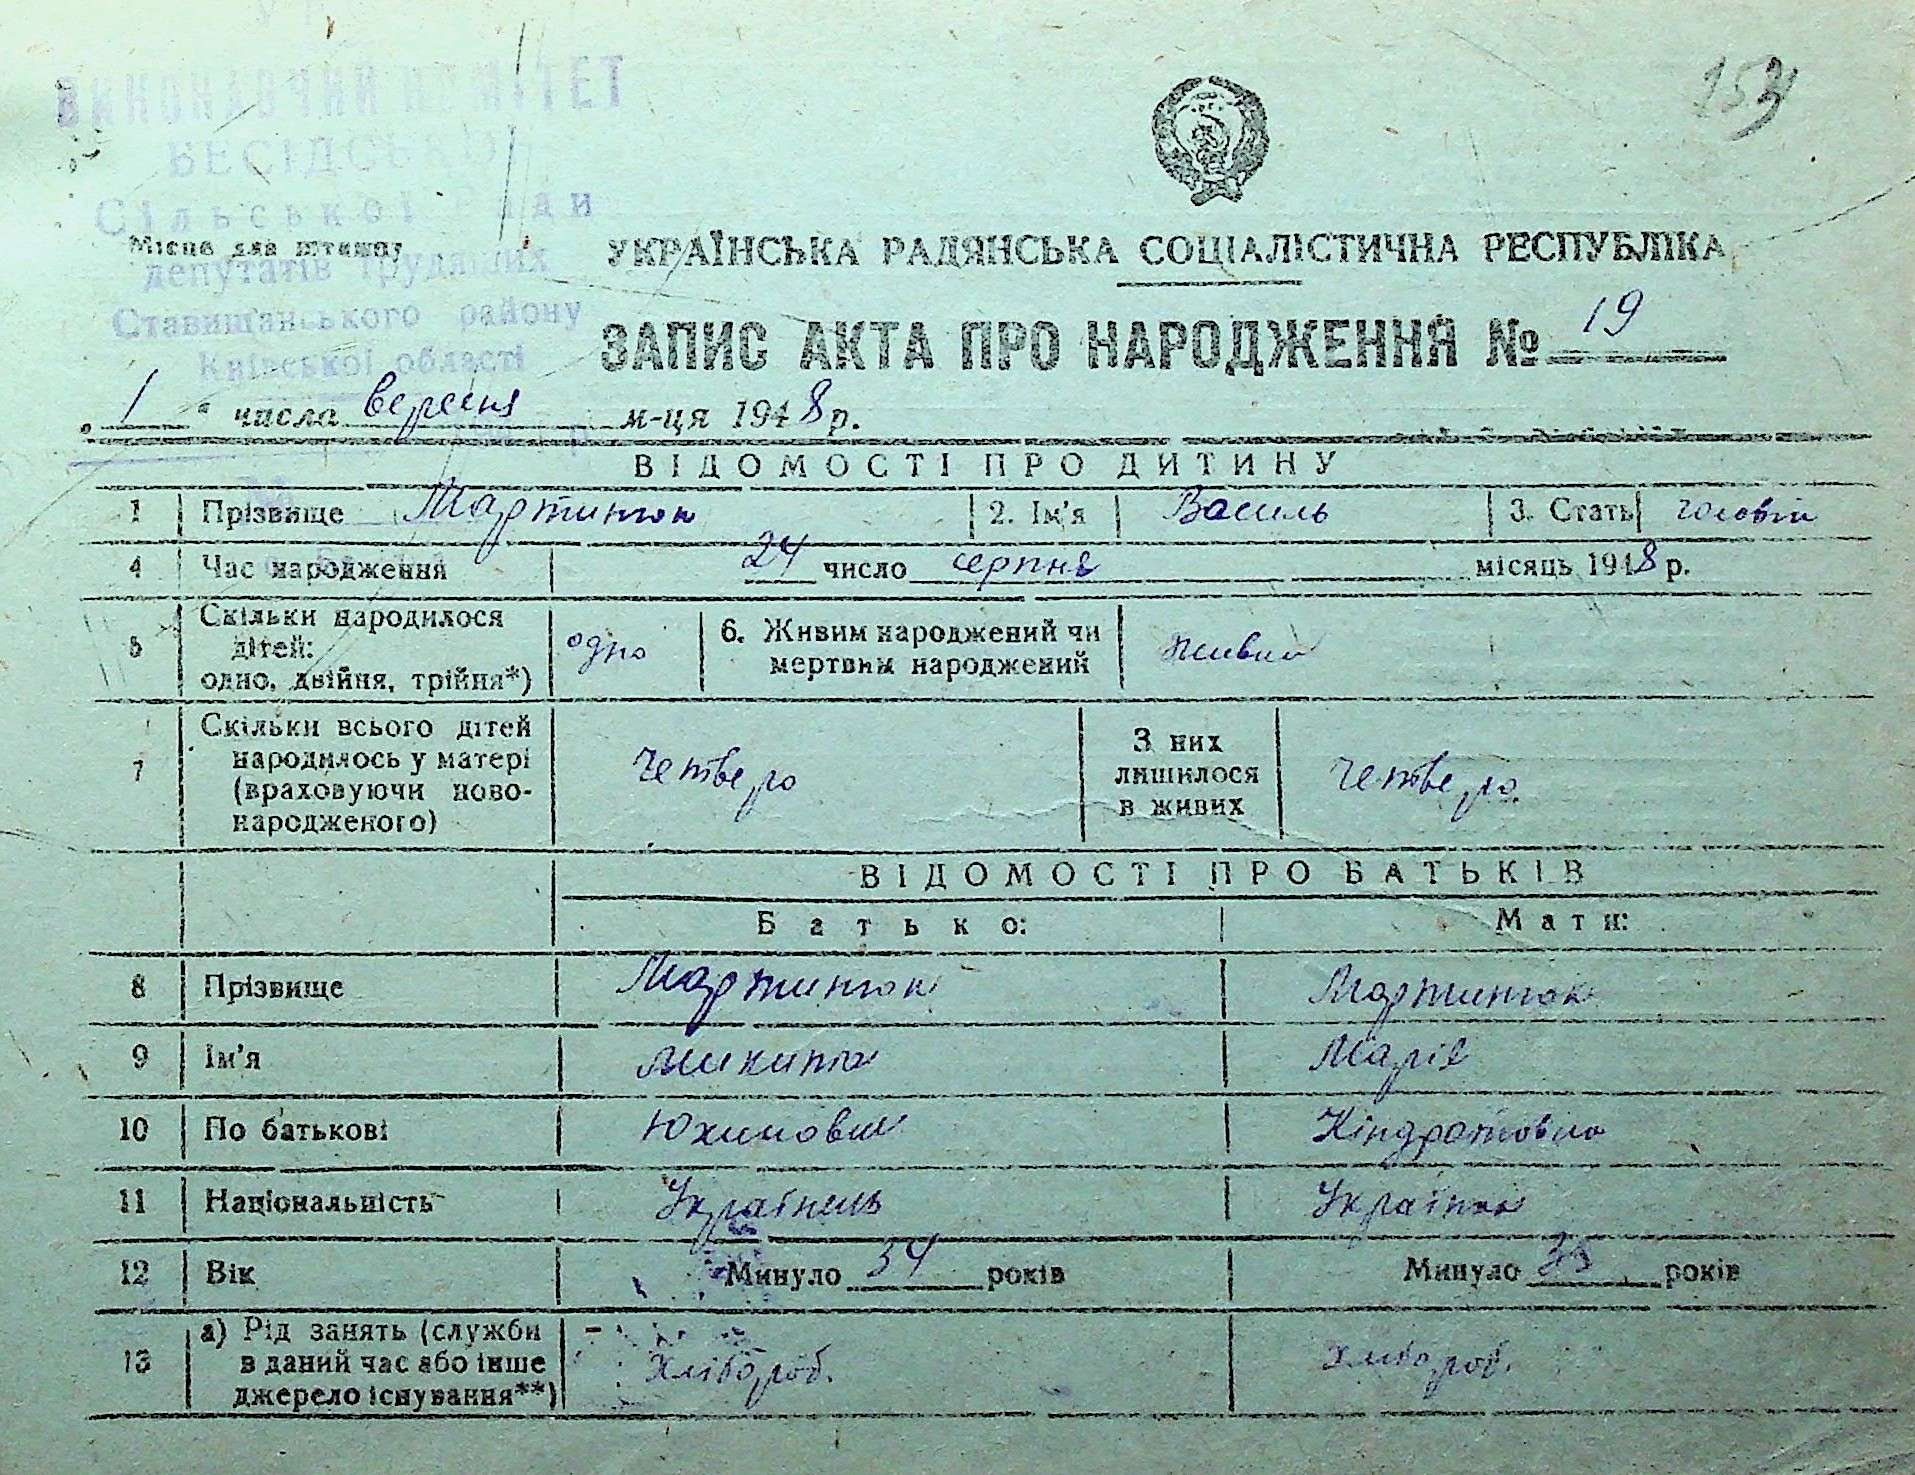 УР
ВИКОНАВЧИЙ КОМІТЕТ
БЕСІДСЬКОЇ
Сільської Ради
депутатів трудящих
Ставищанського району
Київської області
153
Місце для штампу
УКРАЇНСЬКА РАДЯНСЬКА СОЦІАЛІСТИЧНА РЕСПУБЛІКА
ЗАПИС АКТА ПРО НАРОДЖЕННЯ № 19
„ 1 “ числа вересня м-ця 1948 р.
ВІДОМОСТІ ПРО ДИТИНУ
1 Прізвище Мартинюк 2. Ім'я Василь 3. Стать чоловіч
4 Час народження 24 число серпня місяць 1948 р.
5 Скільки народилося дітей: одно, двійня, трійня*) одно 6. Живим народжений чи мертвим народжений живим
7 Скільки всього дітей народилось у матері (враховуючи новонародженого) четверо З них лишилося в живих четверо
ВІДОМОСТІ ПРО БАТЬКІВ
Батько: Мати:
8 Прізвище Мартинюк Мартинюк
9 Ім'я Микита Марія
10 По батькові Юхимович Кіндратовна
11 Національність Українець Українка
12 Вік Минуло 34 років Минуло років
13 а) Рід занять (служби в даний час або інше джерело існування**) хлібороб. хлібороб.